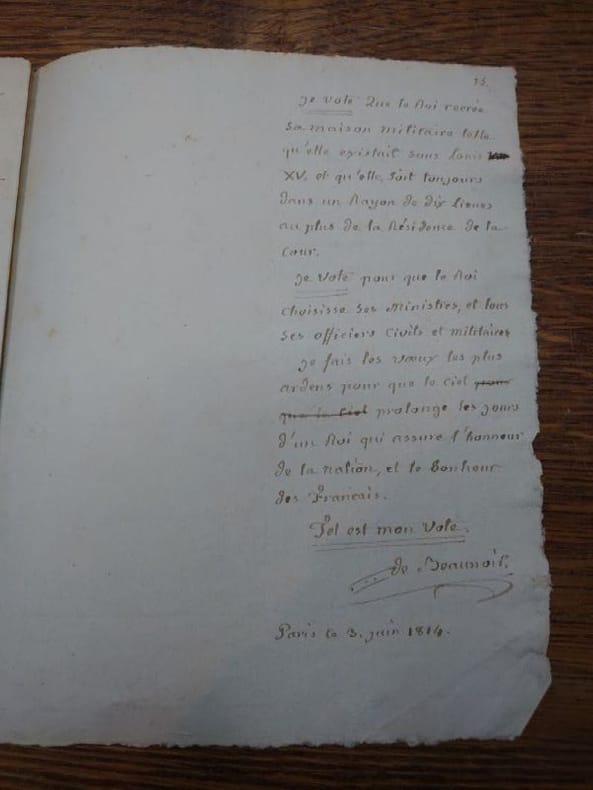 15.
Je vote que le Roi recrée
sa maison militaire telle
qu'elle existait sous Louis
XV. et qu'elle soit toujours
dans un Rayon de dix lieues
au plus de la Résidence de la
Cour.
Je vote pour que le Roi
choisisse ses Ministres, et tous
ses officiers civils et militaires
Je fais les vœux les plus
ardens pour que le Ciel pour
que le Ciel prolonge les jours
d'un Roi qui assure l'honneur
de la nation, et le Bonheur
des Français.
Tel est mon vote.
de Beaunoir.
Paris le 3. juin 1814.